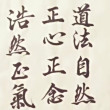 道法自然
正心正念
浩然正氣